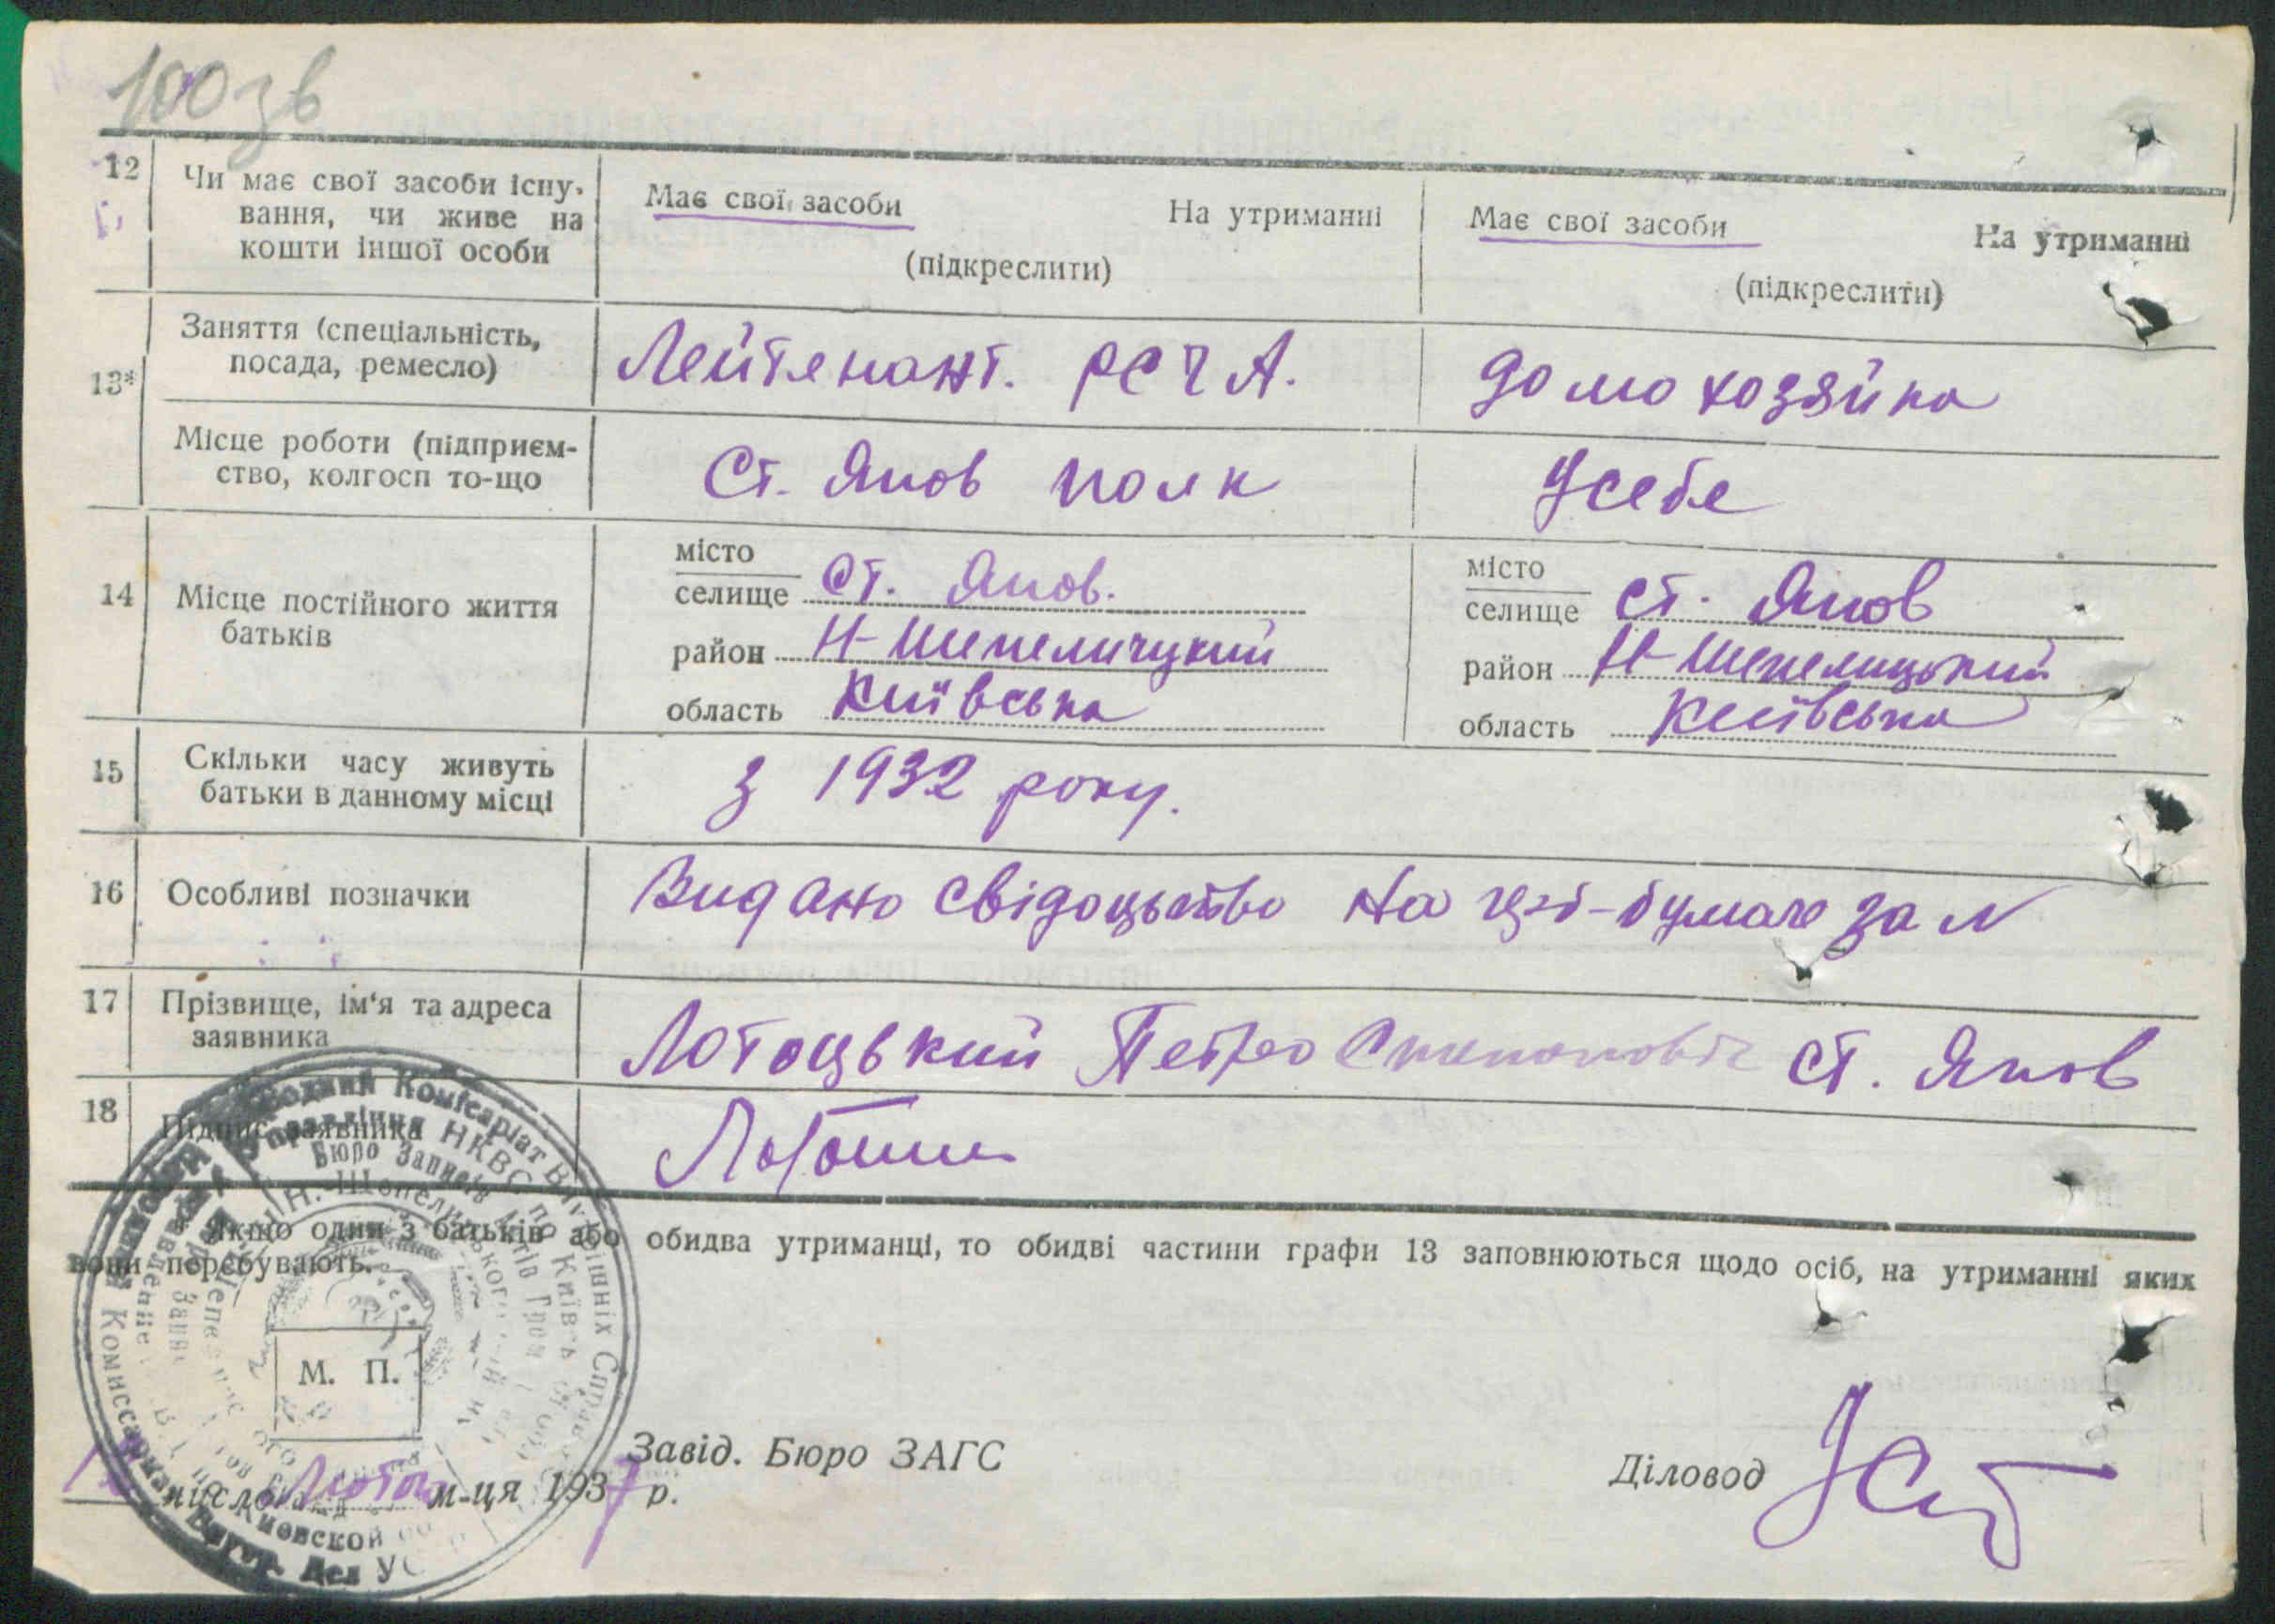 100зв
12 Чи має свої засоби існу-
вання, чи живе на
кошти іншої особи
Має свої засоби На утриманні
(підкреслити)
Має свої засоби На утриманні
(підкреслити)
13* Заняття (спеціальність,
посада, ремесло)
Лейтенант. РСЧА.
домохозяйка
Місце роботи (підприєм-
ство, колгосп то-що
Ст. Янов полк
У себе
14 Місце постійного життя
батьків
місто
селище ст. Янов.
район Н-Шепеличукий
область Київська
місто
селище ст. Янов
район Н-Шепелицький
область Київська
15 Скільки часу живуть
батьки в данному місці
З 1932 року.
16 Особливі позначки
Видано свідоцьтво на бумаге за N
17 Прізвище, ім'я та адреса
заявника
Лотоцький Петро ст. Янов
18 Підпис заявника
Якщо один з батьків або обидва утриманці, то обидві частини графи 13 заповнюються щодо осіб, на утриманні яких
вони перебувають.
М. П.
Народний Комісаріат Внутрішніх Справ
Управління НКВС по Київськ
Бюро Записів Актів Гром
числа Лютого м-ця 1937 р.
Завід. Бюро ЗАГС
Діловод